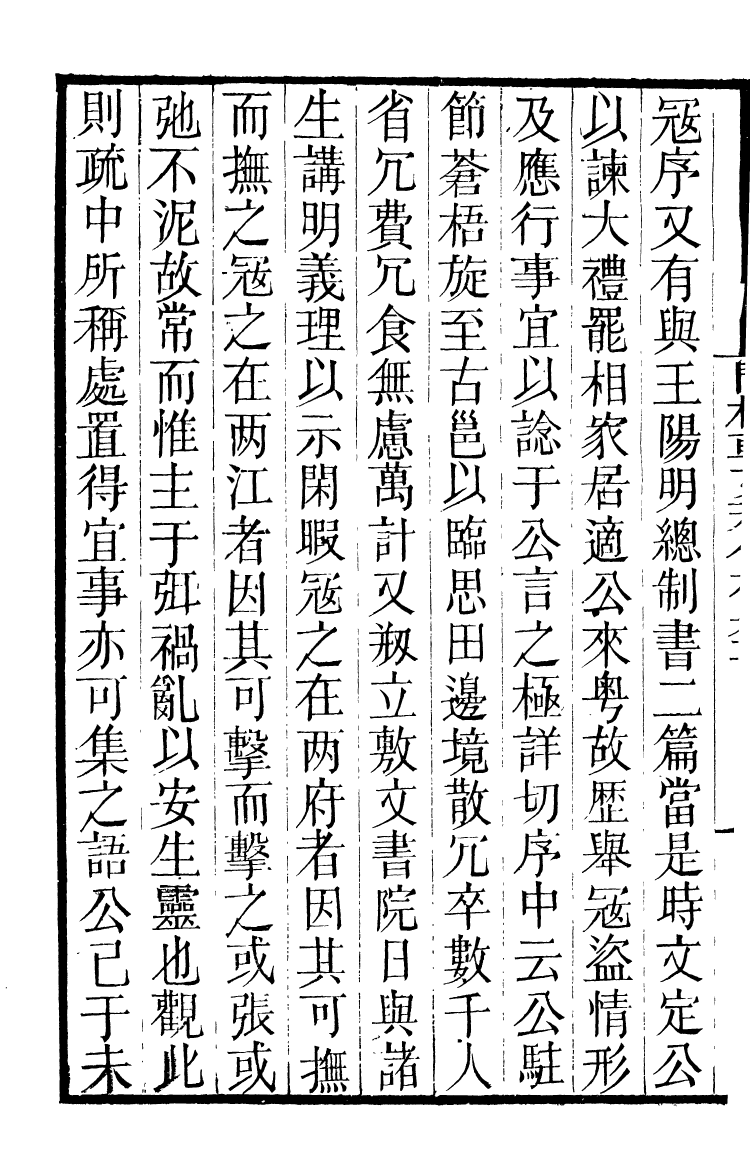 冦序又有與王陽明總制書二篇當是時文定公
以諫大禮罷相家居適公來粤故歴舉冦盜情形
及應行事宜以諗于公言之極詳切序中云公駐
節蒼梧旋至古邕以臨思田邊境散冗卒數千人
省冗費冗食無慮萬計又剏立敷文書院日與諸
生講明義理以示閑暇冦之在两府者因其可撫
而撫之冦之在两江者因其可擊而擊之或張或
弛不泥故常而惟主于弭禍亂以安生靈也觀此
則疏中所稱處置得宜事亦可集之語公已于未